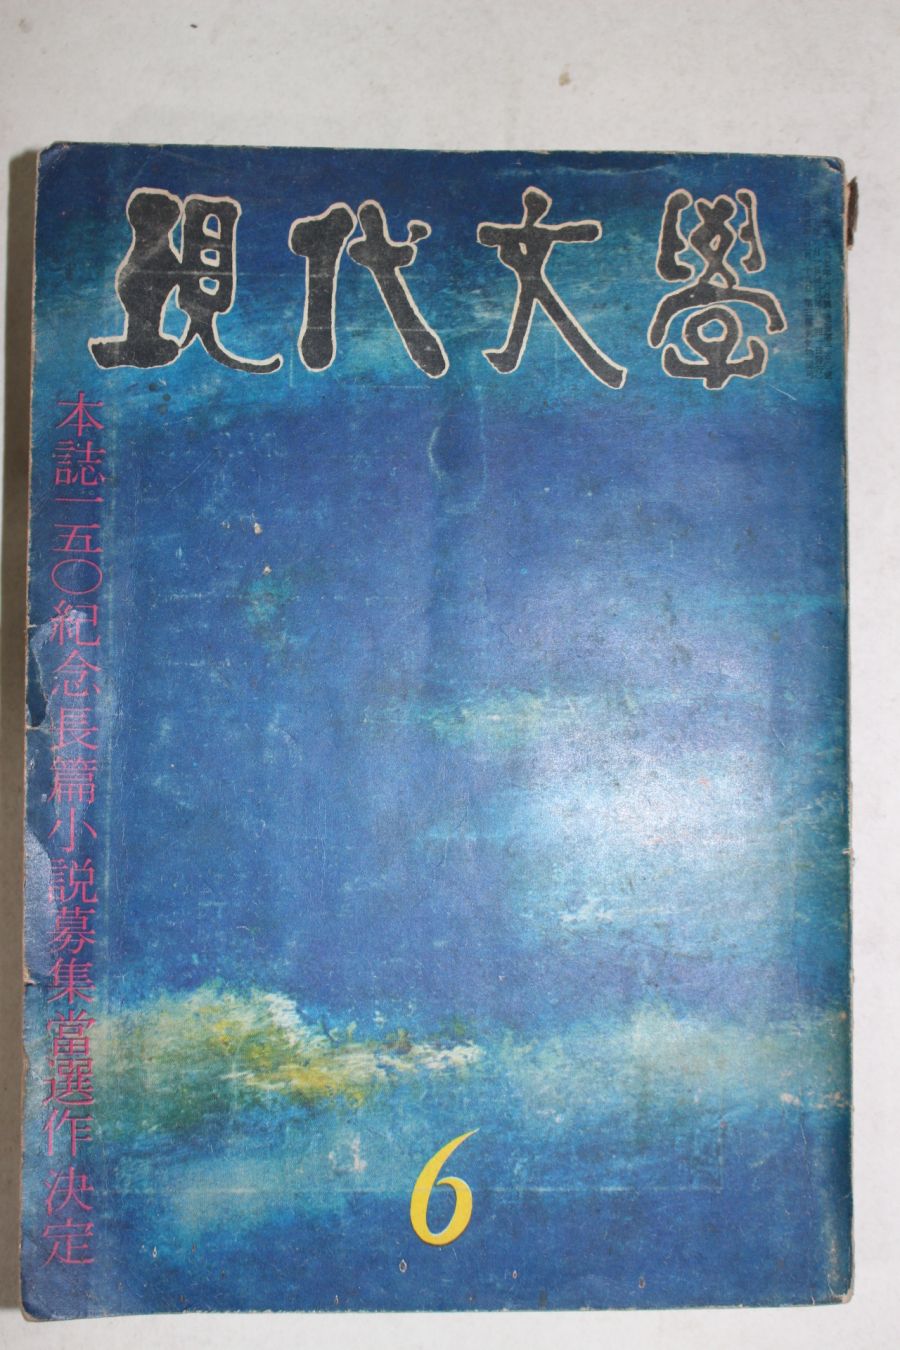 現代文學
本誌一五〇紀念長篇小説募集當選作決定
6